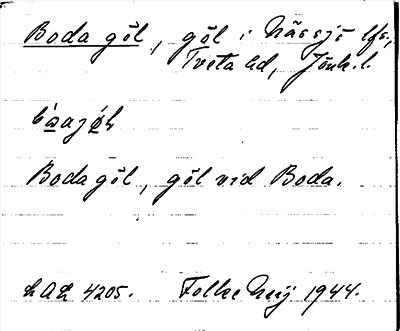 Boda göl, göl i Nässjö lfs.,
Tveta hd, Jönk. l.
Boda göl, göl vid Boda.
LAL 4205. Folke Neij 1944.